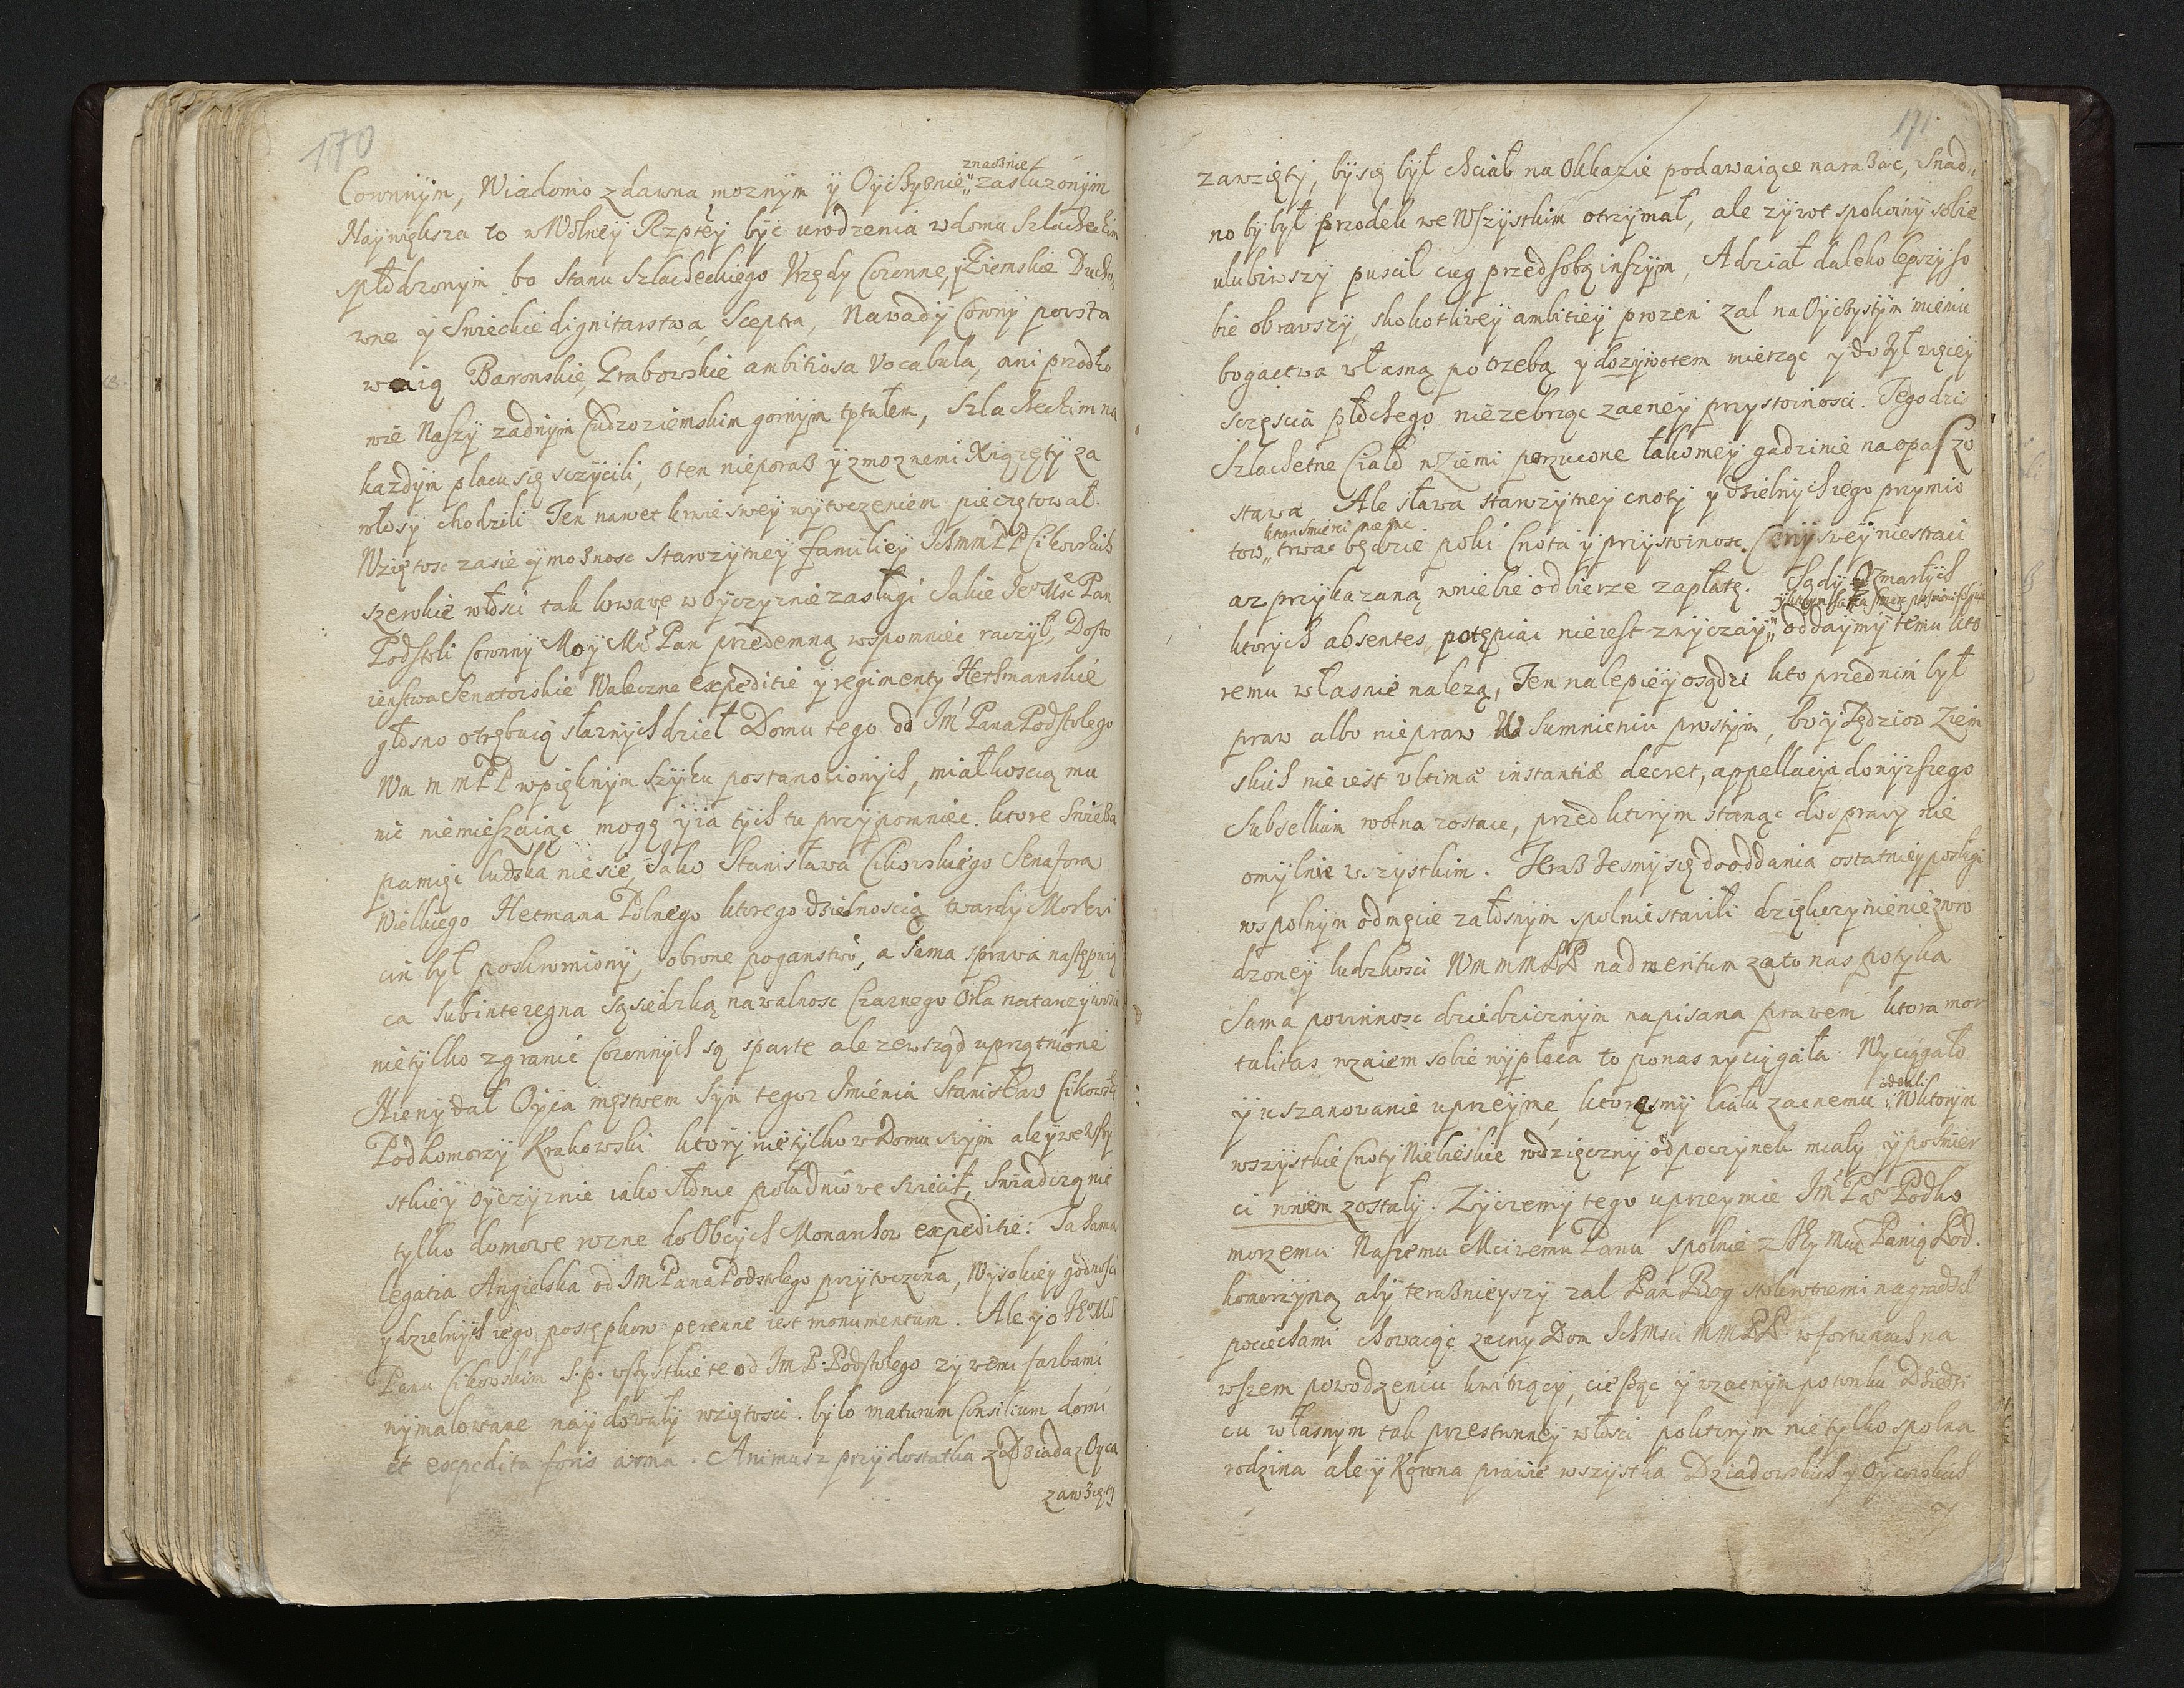 170
znacznie
Coronnym, Wiadomo zdawna moznym y Oyczyznie zasłuzonym
Naywiększa to w Wolney Rzptey być urodzenia w domu Szlacheckim
spłodzonym bo Stanu Szlacheckiego Vrzędy Coronne, y Ziemskie Ducho„
wne y Swieckie dignitarstwa, Sceptra, Nawady Corony porsta
waią Baronskie, Grabowskie ambitiosa vocabula, ani przodko
wie Naszy zadnym Cudzoziemskim gornym tytułem, Szlacheckim na
kazdym placu się sczycili, o ten nieporaz y zmoznemi Xiązęty za
włosy chodzili Ten nawet krwie swey wytoczeniem pieczętował.
Wziętosc zasie y moznosc starozytney familiey IchmmPP Cikowskich
szerokie włosci tak krwawe w oyczyznie zasługi Jakie Jeº Mść Pan
Podstoli Coronny Moy Mś Pan przedemną wspomniec raczył, Dosto
ienstwa Senatorskie Waleczne expeditie y regimenty Hethmanskie
głosno otrębuią sławnych dzieł Domu tego od Im Pana Podstolego
Wm m mPP w pięknym szyku postanowionych, miałkoscią mu
nie niemieszaiąc mogę y ia tych tu przypomniec. ktore Swieża
pamięc ludzka niesie, Jako Stanisława Cikowskiego Senatora
Wielkiego Hetmana Polnego ktorego dzielnoscią twardy Moskwi
cin był poskromiony, obrone poganstwo, a sama sprawa następuią
ca sub interegna sąsiedzką nawalnosc Czarnego Orła natarczywosci
nietylko zgranic Coronnych są sparte ale zewsząd uprzątnione
Niewydał Oyca męstwem syn tegoz Imienia Stanisław Cikowsky
Podkomorzy Krakowski ktory nietylko w Domu swym ale y we wszy
stkiey Oyczyznie iako słonce południowe swiecił, Swiadczą nie
tylko domowe rozne do Obcych Monarchow expeditie: Ta sama
legatia Angielska od Im Pana Podstolego przytoczona, Wysokiey godnosci
y dzielnych iego postępkow perenne iest monumentum. Ale y o Jeº Ms
Panu Cikowskim S.p. wszystkie te od Im P. Podstolego zywemi farbami
wymalowane naydowały wziętosci. było maturum Consilium domi
et expedita foris arma. Animusz przy dostatku z Dziada z Oyca
zawzięty
171.
zawzięty, by się był chciał na Okkazie podawaiące narazac, snad„
no by był przodek we Wszystkim otrzymał, ale zywot spokoiny sobie
ulubiwszy puscił cug przed sobą inszym, A dział daleko lepszy so
bie obrawszy, skokotliwey ambitiey prozen zal na Oyczystym mieniu
bogactwa własną potrzebą y dozywotem mierząc y do zył więcey
sczęscia płochego niezebrząc zacney przystoinosci. Tego dzis
Szlachetne Ciało w Ziemi porzucone łakomey gadzinie na opas zo
stawa Ale sława starozytney cnoty y dzielnych iego przymio
ktora smierci niezna
tow„ trwac będzie poki Cnota y przystoinosc Ceny swey niestraci
az przykazaną w niebie odbierze zapłatę. Sądy o zmarłych
ktorych absentes potępiac nieiest zwyczay„ oddaymy temu kto
remu własnie nalezą, Ten nalepiey osądzi kto przed nim był
praw albo niepraw Na Sumnieniu prostym, bo y Sędziow Ziem
skich nie iest vltima instantiæ decret, appellacya do wyzszego
Subsellium wolna zostaie, przed ktorym stanąc dosprawy nie
omylnie wszystkim. Teraz zesmy się do oddania ostatniey posługi
wspolnym odmęcie załosnym spolnie stawili dziękczynienie z wro
dzoney ludzkosci Wm m mPP nad meritum zato nas potyka
Sama powinnosc dziedzicznym napisana prawem ktora mor
talitas wzaiem sobie wypłaca to ponas wyciągała. Wyciągało
oddali
y uszanowanie uprzeyme, ktoresmy Ciału zacnemu„ Wktorym
wszystkie Cnoty Niebieskie wdzięczny odpoczynek miały y posmier
ci w niem zostały. Zyczemy tego uprzeymie Im Pa Podko
morzemu Naszemu Mciwemu Panu spolnie z Jey Mcią Panią Pod.
komorzyną aby terazniejszy zal Pan Bog stokrotnemi nagradził
pociechami chowaiąc zacny Dom IchMsci mmPP. w fortunach na
wszem powodzeniu kwitnący, ciesząc y w zacnym potomku Dziedzi
cu własnym tak przestronney włosci poktorym nietylko spolna
rodzina ale y Korona prawie wszystka Dziadowskich y Oycowskich